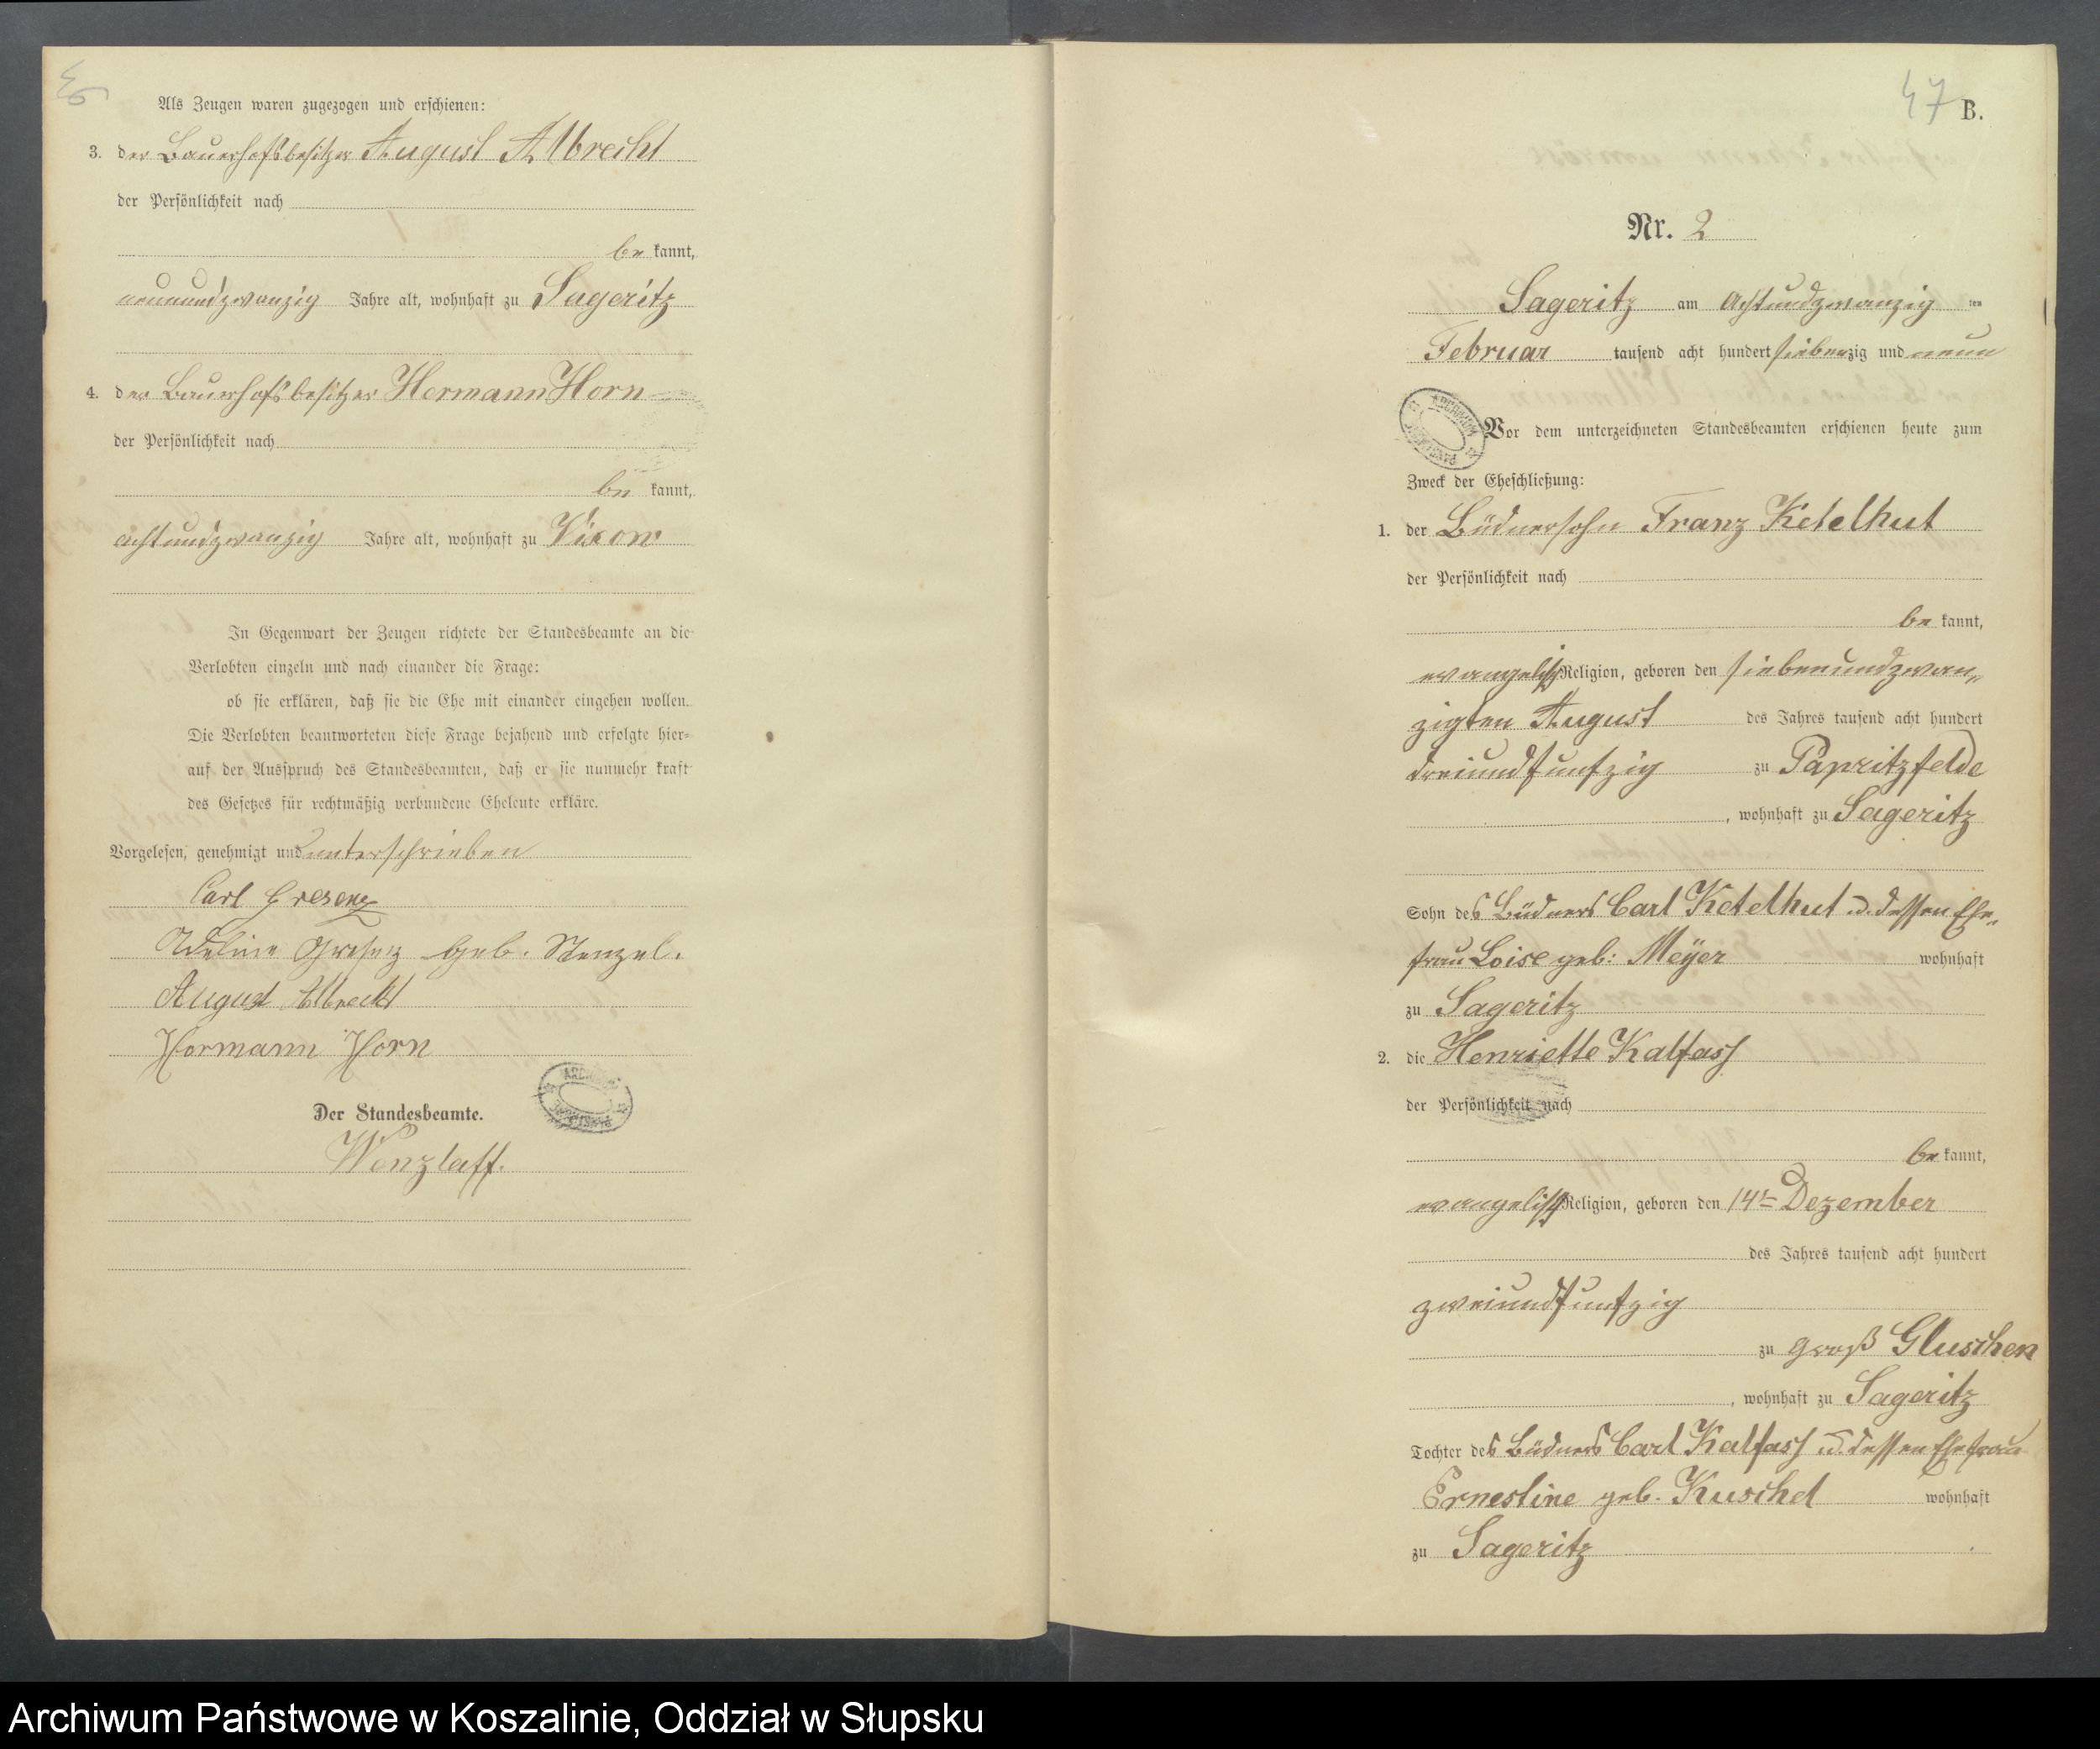 Als Zeugen waren zugezogen und erschienen:
3. der Bauerhofsbesitzer August Albrecht
der Persönlichkeit nach
be kannt,
neunundzwanzig Jahre alt, wohnhaft zu Sageritz
4. der Bauerhofsbesitzer Hermann Horn
der Persönlichkeit nach
be kannt,
achtundzwanzig Jahre alt, wohnhaft zu Vixow
In Gegenwart der Zeugen richtete der Standesbeamte an die
Verlobten einzeln und nach einander die Frage:
ob sie erklären, daß sie die Ehe mit einander eingehen wollen.
Die Verlobten beantworteten diese Frage bejahend und erfolgte hier-
auf der Ausspruch des Standesbeamten, daß er sie nunmehr kraft
des Gesetzes für rechtmäßig verbundene Eheleute erkläre.
Vorgelesen, genehmigt und unterschrieben
Carl Gresenz
Adeline Gresenz geb. Stenzel.
August Albrecht
Hermann Horn
Der Standesbeamte.
Wenzlaff.
47
B.
Nr. 2
Sageritz am achtundzwanzig ten
Februar tausend acht hundert siebenzig und neun
Vor dem unterzeichneten Standesbeamten erschienen heute zum
Zweck der Eheschließung:
1. der Büdnersohn Franz Ketelhut
der Persönlichkeit nach
be kannt,
evangelisch Religion, geboren den siebenundzwan„
zigten August des Jahres tausend acht hundert
dreiundfunfzig zu Papritzfelde
, wohnhaft zu Sageritz
Sohn des Büdners Carl Ketelhut u. dessen Ehe„
frau Loise geb: Meÿer wohnhaft
zu Sageritz
2. die Henriette Kalfass
der Persönlichkeit nach
be kannt,
evangelisch Religion, geboren den 14t Dezember
des Jahres tausend acht hundert
zweiundfunfzig
zu groß Gluschen
, wohnhaft zu Sageritz
Tochter des Büdners Carl Kalfass u. dessen Ehefrau
Ernestine geb. Kuschel wohnhaft
zu Sageritz
Archiwum Państwowe w Koszalinie, Oddział w Słupsku